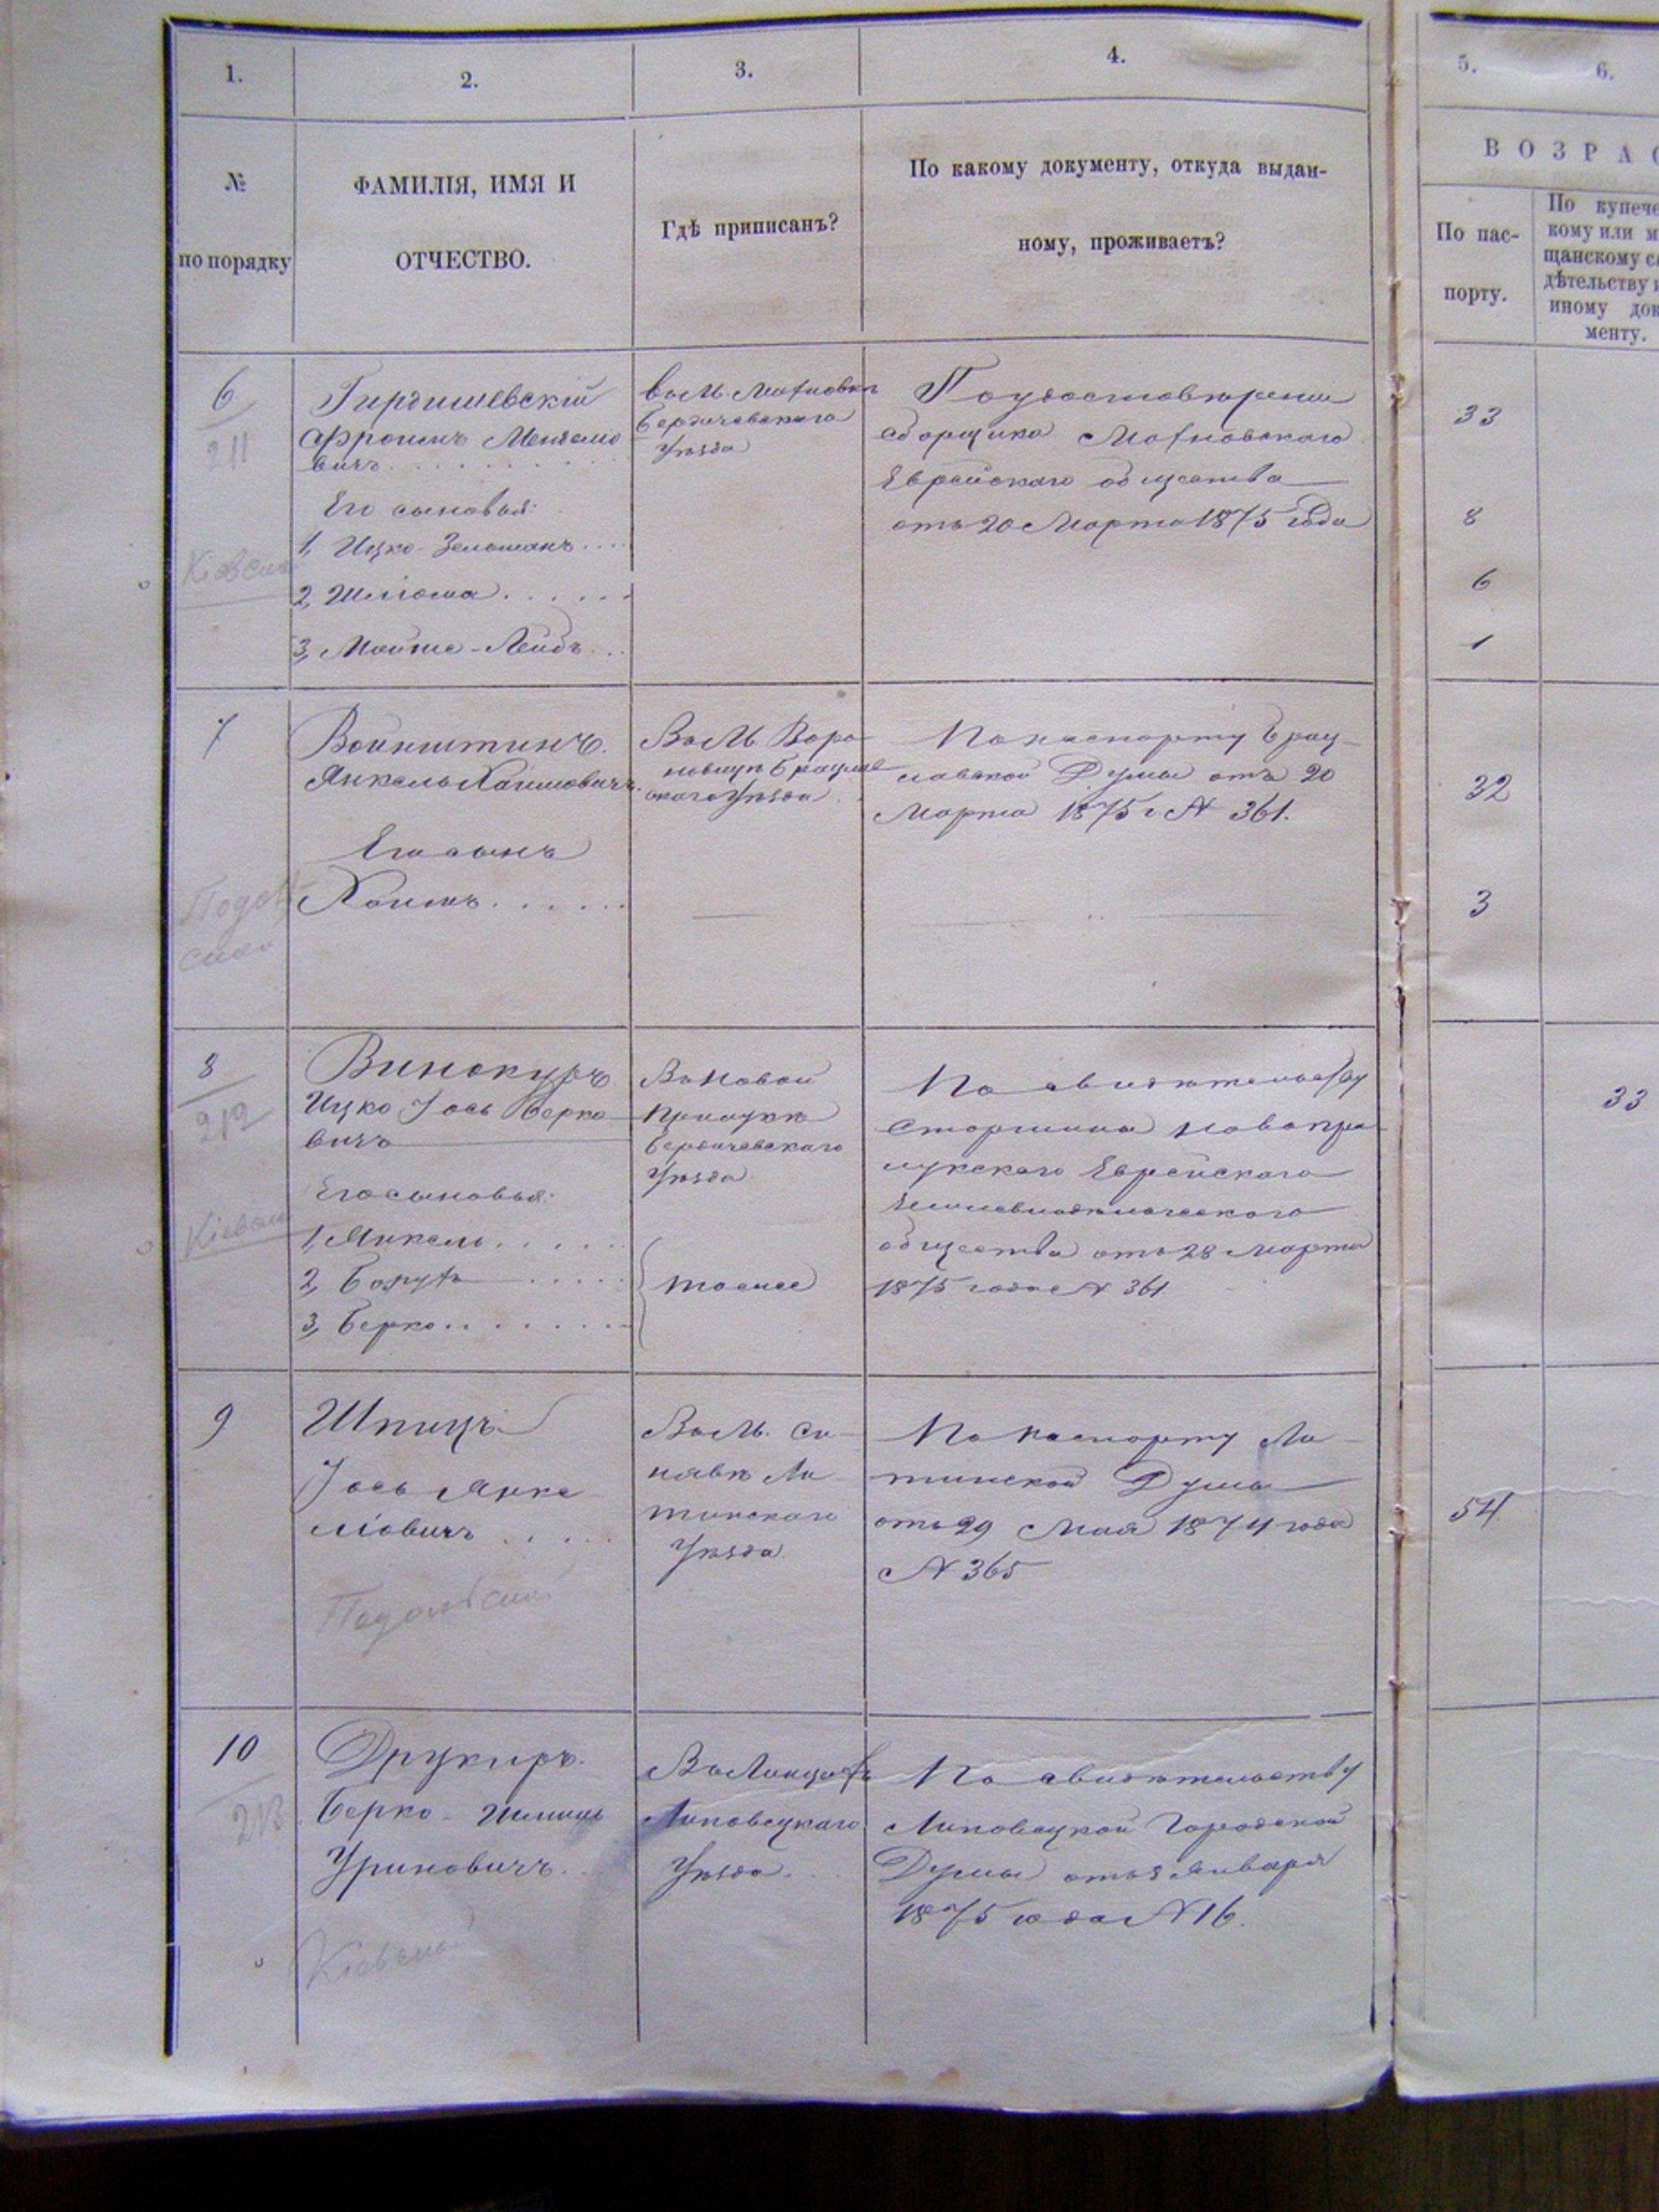 1.
2.
3.
4.
5.
6.
№
по порядку
ФАМИЛІЯ, ИМЯ И
ОТЧЕСТВО.
Гдѣ приписанъ?
По какому документу, откуда выдан-
ному, проживаетъ?
ВОЗРАС
По пас-
порту.
По купече
кому или м
щанскому с
дѣтельству и
иному док
менту.
6
211
Кіевск
Гирдишевскій
Фроимъ Менделе
вичъ
Его сыновья:
1, Ицко-Зельманъ
2, Шліома
3, Мойше-Лейбъ
въ м. Махновкѣ
Бердичевскаго
Уѣзда
По удостовѣренію
сборщика Махновскаго
Еврейскаго общества
отъ 20 Марта 1875 года
33
8
6
1
7
Подол
ская
Войнштинъ.
Янкель Хаимовичъ.
Его сынъ
Хаимъ
Въ М. Воро
новицѣ Брацлав
скаго Уѣзда
По паспорту Брац-
лавской Думы отъ 20
Марта 1875 г № 361.
32
3
8
212
Кіевск
Винокуръ
Ицко Іось Берко
вичъ
Его сыновья:
1, Янкель
2, Борухъ
3, Берко
Въ Новой
Прилукѣ
Бердичевскаго
Уѣзда
тоже
По свидѣтельству
Старшины Новопри
лукскаго Еврейскаго
Земледѣльческаго
общества отъ 28 Марта
1875 года № 361
33
9
Шпицъ
Іось Янке
ліовичъ
Подольской
Въ М. Си-
нявѣ Ли-
тинскаго
Уѣзда
По паспорту Ли-
тинской Думы
отъ 29 Мая 1874 года
№ 365
54
10
213
Друкиръ.
Берко-Шлиша
Уриновичъ.
Кіевской
Въ Линцахъ
Липовецкаго
Уѣзда.
По свидѣтельству
Липовецкой Городской
Думы отъ 8 Января
1875 года № 16.